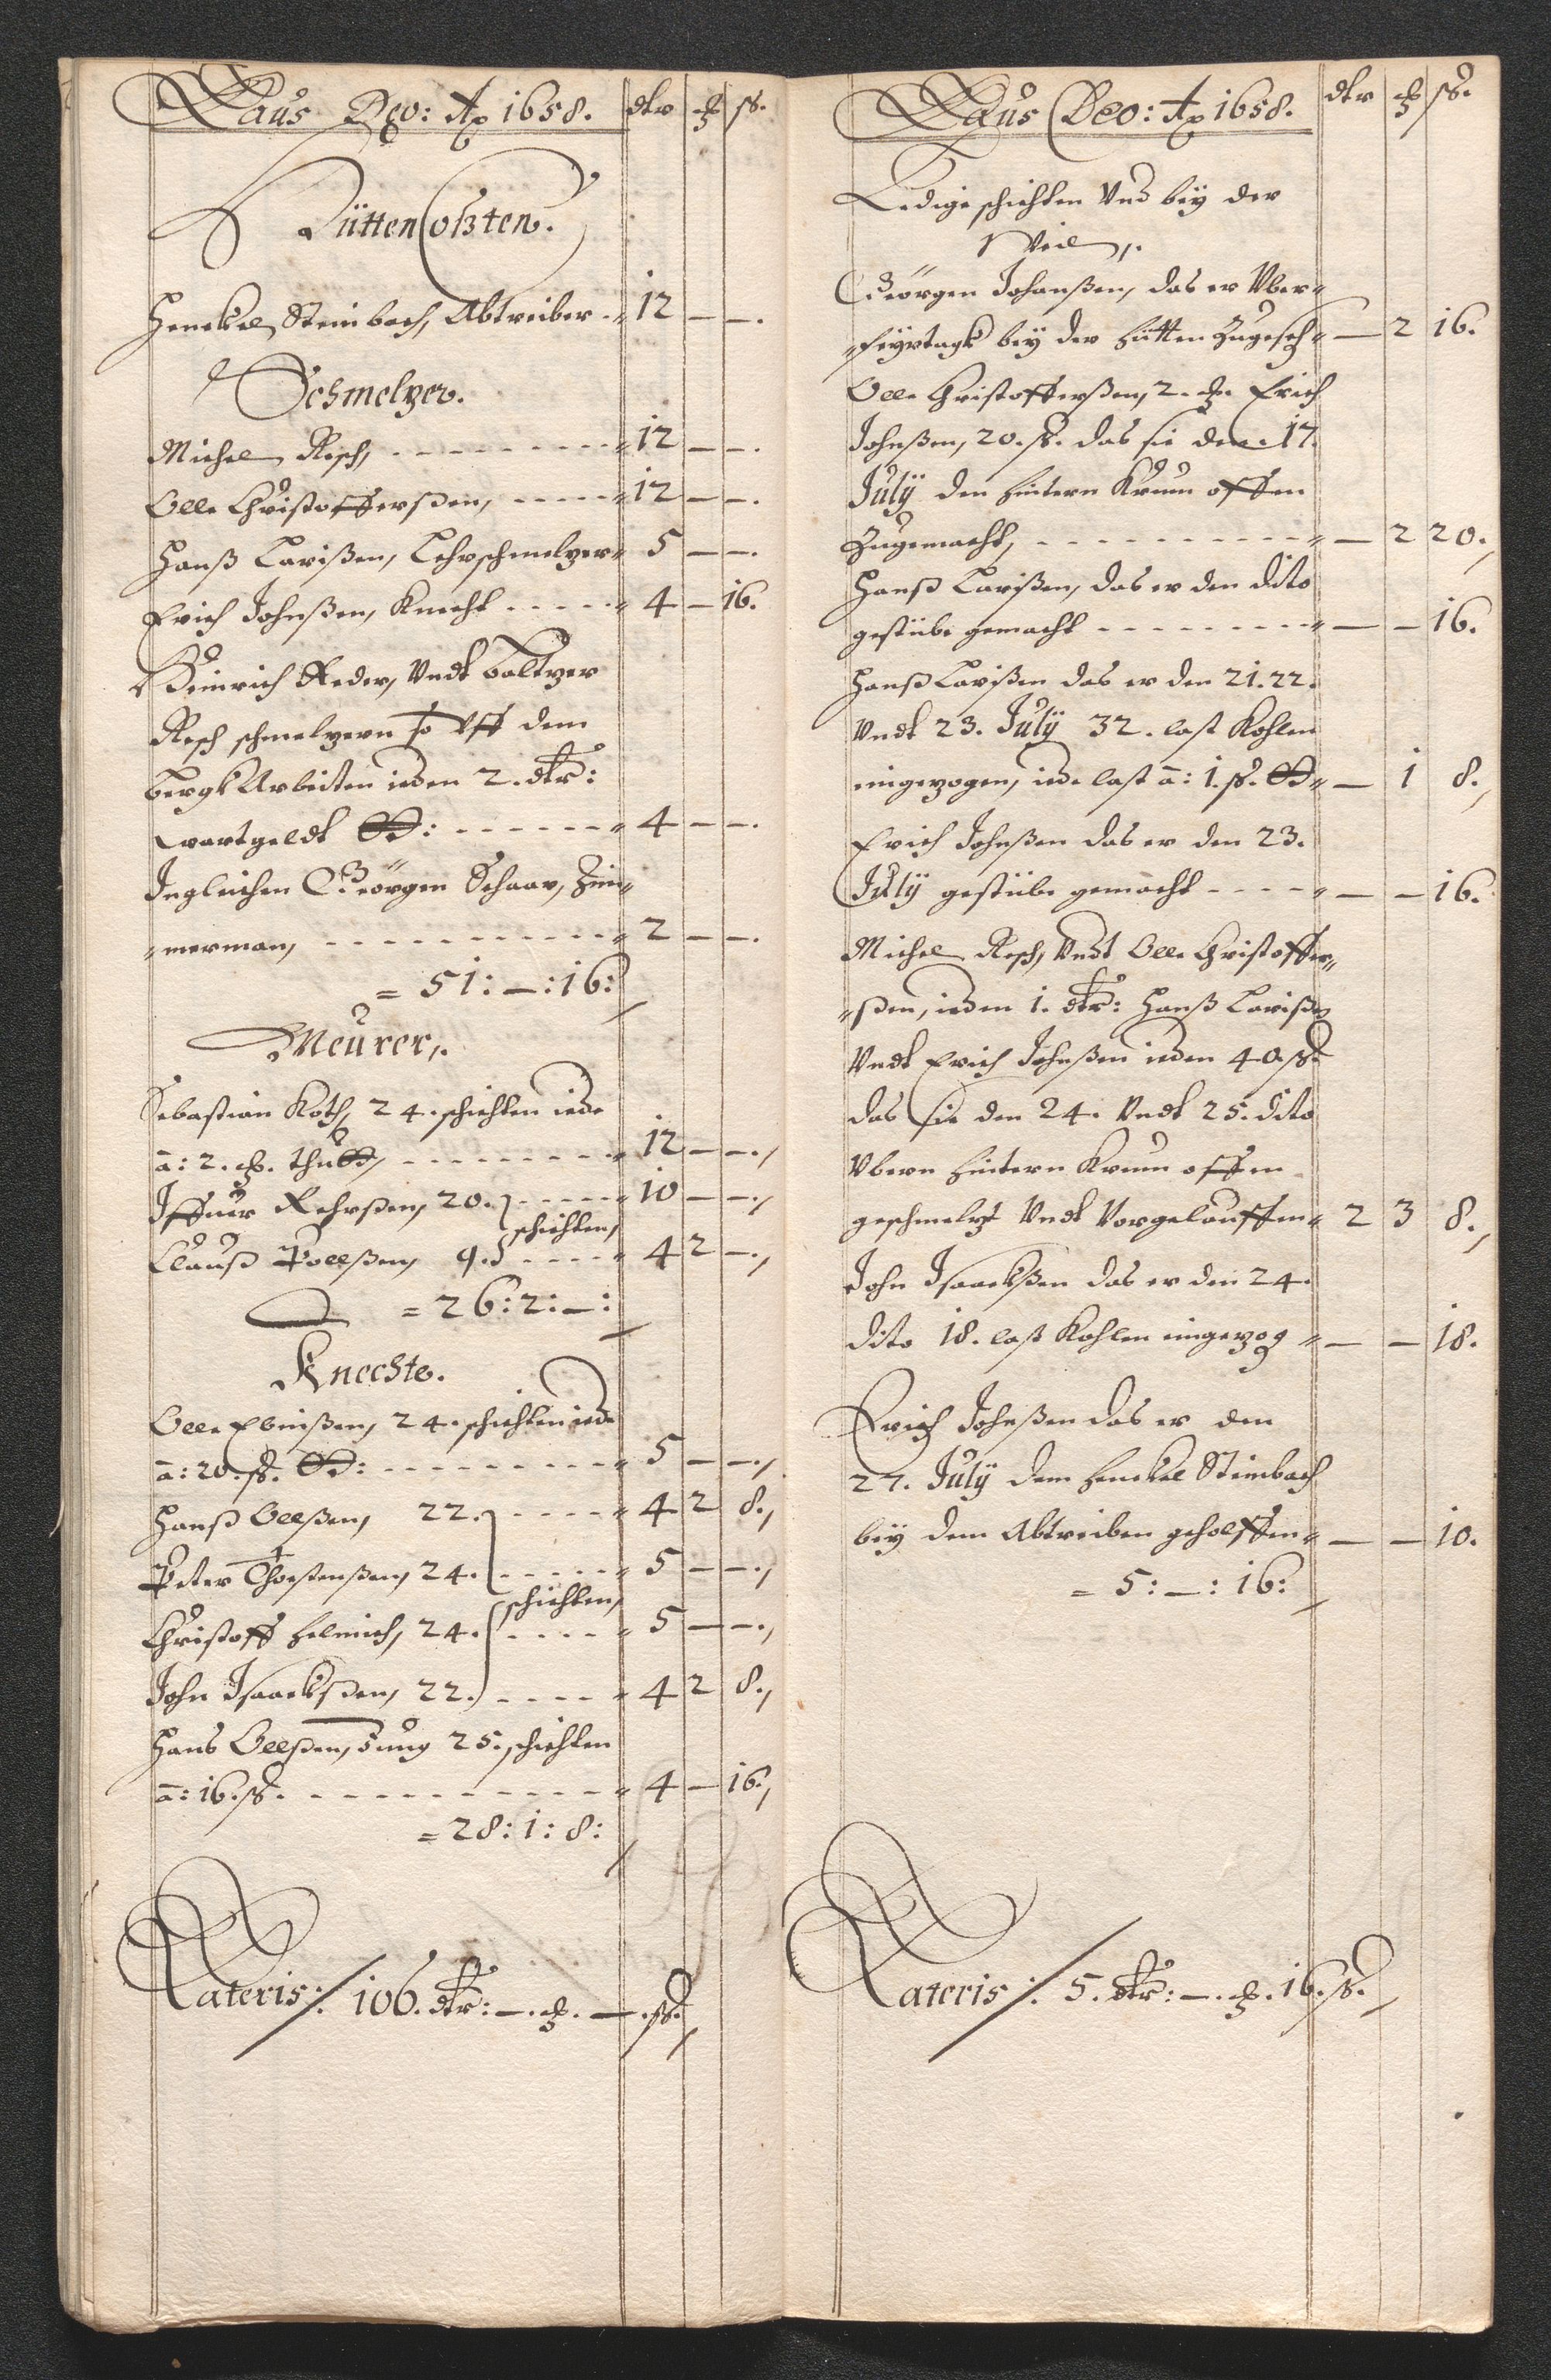 Laus Deo: Aō 1658. dlr ȝ ß.
HüttenCosten.
Henckel Steinbach, Abtreiber. 12 — —.
Schmelzer.
Michel Resch, - - - - - - - - - 12 — —.
Olle Christoffersßen, - - - - - 12 — —.
Hanß Larißen, Lehrschmelzer 5 — —.
Erich Johnßen, Knecht - - - - - 4 — 16.
Heinrich Reder, Undt Baltzer
Resch schmelzern so Uff dem
Bergk Arbeiten ieden 2. dlr:
wartgeldt - - - - - - - 4 — —.
Ingleichen Geörgen Schaar, Zim-
-merman, - - - - - - - - - - - 2 — —.
= 51: — : 16:
Meürer,.
Sebastian Koth, 24. schichten iede
ā: 2. ȝ. thutt, - - - - - - - - 12 — —.,
Iffuer Rehrßen, 20. - - - - - 10 — —.,
schichten,
Clauß Pollßen, 9. - - - - 4 2 —.,
= 26: 2: — :
Knechte.
Olle Ebnißen, 24. schichten iede
ā: 20. ß. - - - - - - - - - 5 — —.,
Hanß Ollßen, 22. - - - - - 4 2 8.,
Peter Thorstenßen, 24. - - - - - 5 — —.,
schichten,
Christoff Helmich, 24. - - - - 5 — —.,
John Isaackßen, 22. - - - - 4 2 8.,
Hans Ollßen, Jung 25. schichten
ā: 16. ß. - - - - - - - - - - - 4 — 16.,
= 28: 1: 8:
Lateris:/. 106. dlr: —. ȝ. —. ß.
Laus Deo: Aō 1658. dlr ȝ ß.
Ledige schichten Und bey der
Weil,.
Geörgen Johanßen, das er Uber-
-feyrtagk bey der Hütten Zugeseh — 2 16.
Olle Christoffersßen, 2. ȝ. Erich
Johnßen, 20. ß. das sie den 17.
July den hintern Krum offen
Zugemacht, - - - - - - - - - - — 2 20.,
Hanß Larißen, das er den dito
gestübe gemacht - - - - - - - - - — — 16.
Hanß Larißen das er den 21. 22.
Undt 23. July 32. last Kohlen
eingezogen, iede last ā: 1. ß. — 1 8.,
Erich Johnßen das er den 23.
July gestübe gemacht - - - - — — 16.
Michel Resch, Undt Olle Christoffer-
-ßen, ieden 1. dlr: Hanß Larißen
Undt Erich Johnßen ieden 40 ß.
das sie den 24. Undt 25. dito
Ubern hintern Krum offen
geschmelzt Undt Vorgelauffen 2 3 8.,
John Isaackßen das er den 24.
dito 18. last Kohlen eingezog — — 18.
Erich Johnßen das er den
27. July dem Henckel Steinbach
bey dem Abtreiben geholffen — — 10.
= 5: — : 16:
Lateris:/. 5. dlr: —. ȝ. 16. ß.